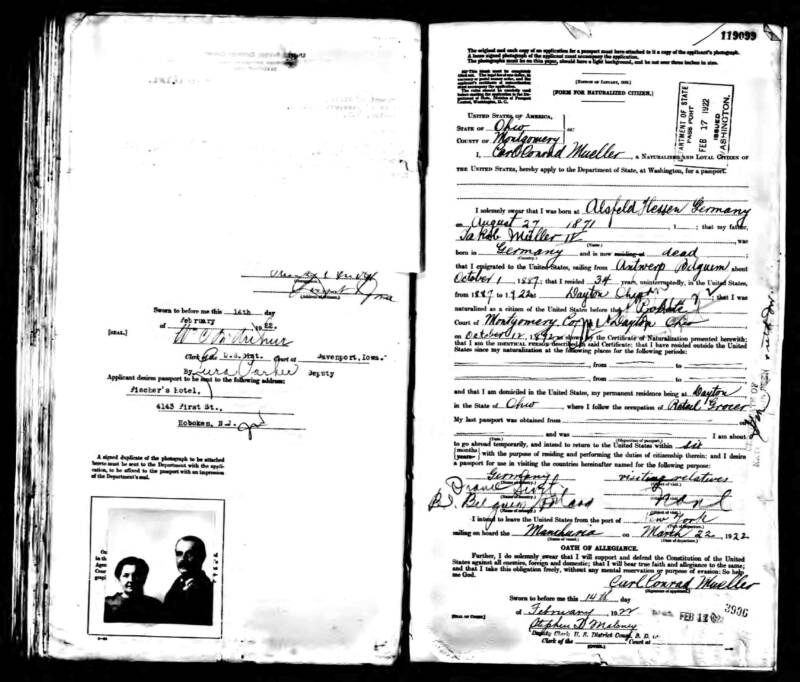 Sworn to before me this 14th day
of February 1922.
[SEAL.]
Clerk U.S. Dist. Court at Davenport, Iowa.
By Deputy
Applicant desires passport to be sent to the following address:
Fischer's Hotel,
4143 First St.,
Hoboken, N.J.
A signed duplicate of the photograph to be attached
hereto must be sent to the Department with the appli-
cation, to be affixed to the passport with an impression
of the Department's seal.
119099
The original and each copy of an application for a passport must have attached to it a copy of the applicant's photograph.
A loose signed photograph of the applicant must accompany the application.
The photographs must be on thin paper, should have a light background, and be not over three inches in size.
[EDITION OF JANUARY, 1921.]
[FORM FOR NATURALIZED CITIZEN.]
DEPARTMENT OF STATE
PASSPORT
FEB 17 1922
ISSUED
WASHINGTON.
UNITED STATES OF AMERICA,
STATE OF Ohio
COUNTY OF Montgomery
I, Carl Conrad Mueller, a NATURALIZED AND LOYAL CITIZEN OF
THE UNITED STATES, hereby apply to the Department of State, at Washington, for a passport.
I solemnly swear that I was born at Alsfeld Hessen Germany
on August 27 1871; that my father,
Jakob Müller IV, was
born in Germany and is now residing at dead;
that I emigrated to the United States, sailing from Antwerp Belguem about
October 1, 1887; that I resided 34 years, uninterruptedly, in the United States,
from 1887 to 1922 at Dayton Ohio; that I was
naturalized as a citizen of the United States before the Probate
Court of Montgomery Co. at Dayton Ohio
on October 12, 1892, as shown by the Certificate of Naturalization presented herewith;
that I am the IDENTICAL PERSON described in said Certificate; that I have resided outside the United
States since my naturalization at the following places for the following periods:
, from to
, from to
and that I am domiciled in the United States, my permanent residence being at Dayton
in the State of Ohio, where I follow the occupation of Retail Grocer
My last passport was obtained from
and was I am about
to go abroad temporarily, and intend to return to the United States within six
{months
years} with the purpose of residing and performing the duties of citizenship therein; and I desire
a passport for use in visiting the countries hereinafter named for the following purpose:
Germany visiting relatives
I intend to leave the United States from the port of New York
sailing on board the Manchuria on March 22, 1922
OATH OF ALLEGIANCE.
Further, I do solemnly swear that I will support and defend the Constitution of the United
States against all enemies, foreign and domestic; that I will bear true faith and allegiance to the same;
and that I take this obligation freely, without any mental reservation or purpose of evasion: So help
me God.
Carl Conrad Mueller
Sworn to before me this 14th day
of February 1922
Stephen D Maloney
Deputy Clerk U. S. District Court, S. D. O.
Clerk of the Court at